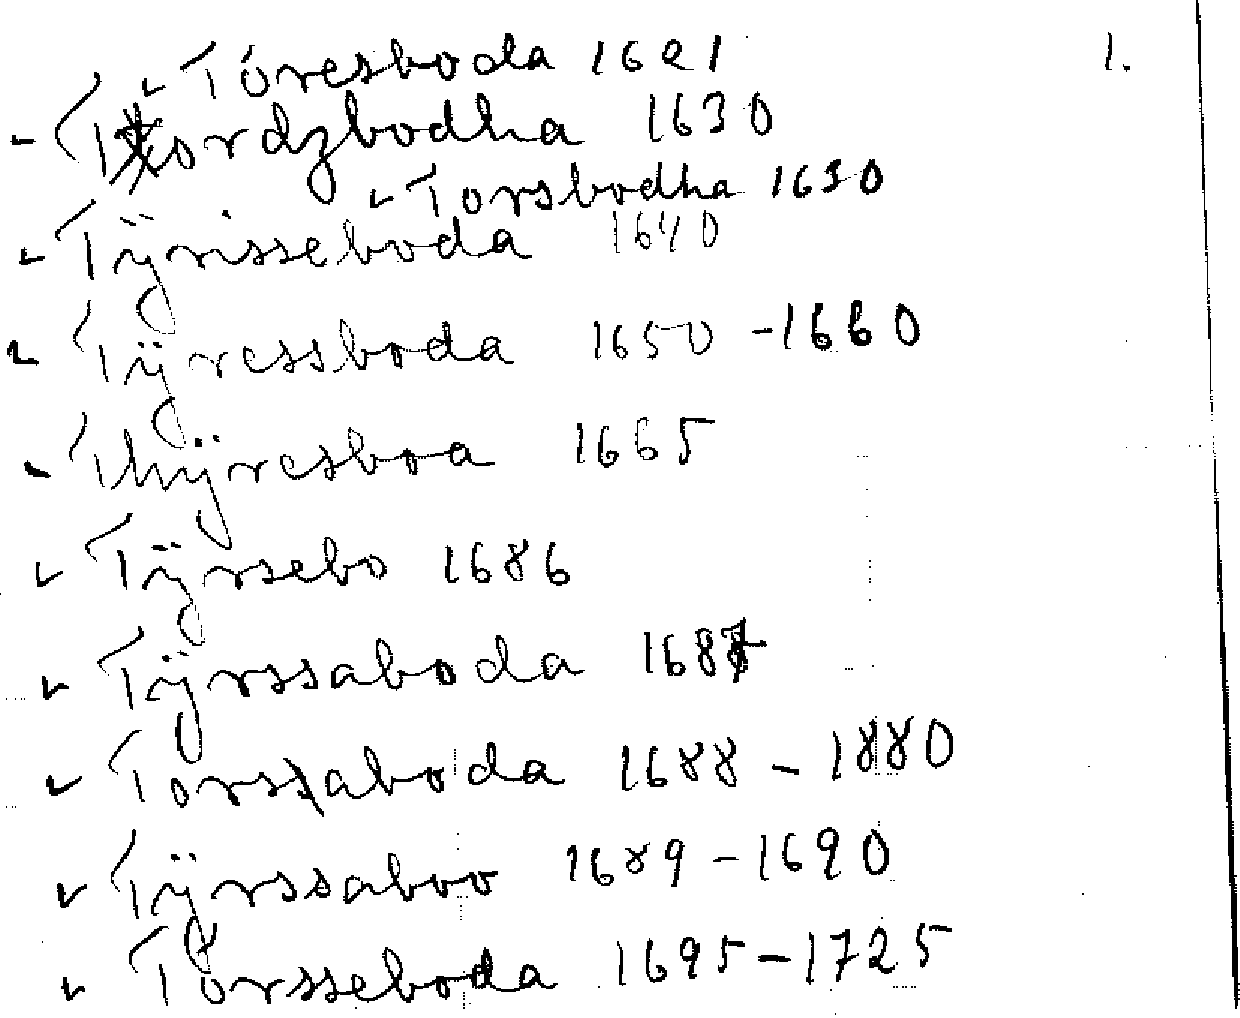 - Töresboda 1621 1.
- Tordzbodha 1630
- Torsbodha 1630
- Tÿrisseboda 1640
- Tÿressboda 1650 - 1660
- Thÿresboa 1665
- Tÿrsebo 1686
- Tÿrssaboda 1687
- Torsaboda 1688 - 1880
- Tÿrssaboo 1689 - 1690
- Törsseboda 1695 - 1725